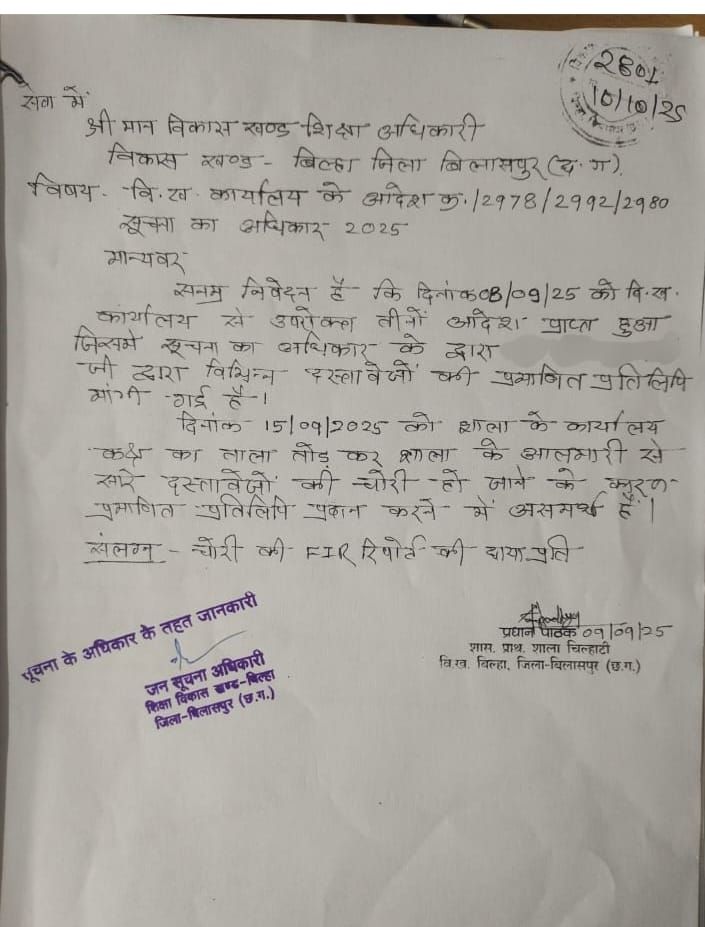 2801
10/10/25
सेवा में
श्री मान विकास खण्ड शिक्षा अधिकारी
विकास खण्ड - बिल्हा जिला बिलासपुर (छ. ग).
विषय - वि. ख. कार्यालय के आदेश क्र./2978/2992/2980
सूचना का अधिकार 2025
मान्यवर
सनम्र निवेदन है कि दिनांक 08/09/25 को वि. ख.
कार्यालय से उपरोक्त तीनों आदेश प्राप्त हुआ
जिसमे सूचना का अधिकार के द्वारा
जी द्वारा विभिन्न दस्तावेजों की प्रमाणित प्रतिलिपि
मांगी गई है।
दिनांक 15/09/2025 को शाला के कार्यालय
कक्ष का ताला तोड़ कर शाला के आलमारी से
सारे दस्तावेजों की चोरी हो जाने के कारण
प्रमाणित प्रतिलिपि प्रदान करने में असमर्थ हूँ।
संलग्न - चोरी की FIR रिपोर्ट की छाया प्रति
प्रधान पाठक 09/09/25
शास. प्राथ. शाला चिल्हाटी
वि.ख. बिल्हा, जिला-बिलासपुर (छ.ग.)
सूचना के अधिकार के तहत जानकारी
जन सूचना अधिकारी
शिक्षा विकास खण्ड-बिल्हा
जिला-बिलासपुर (छ.ग.)